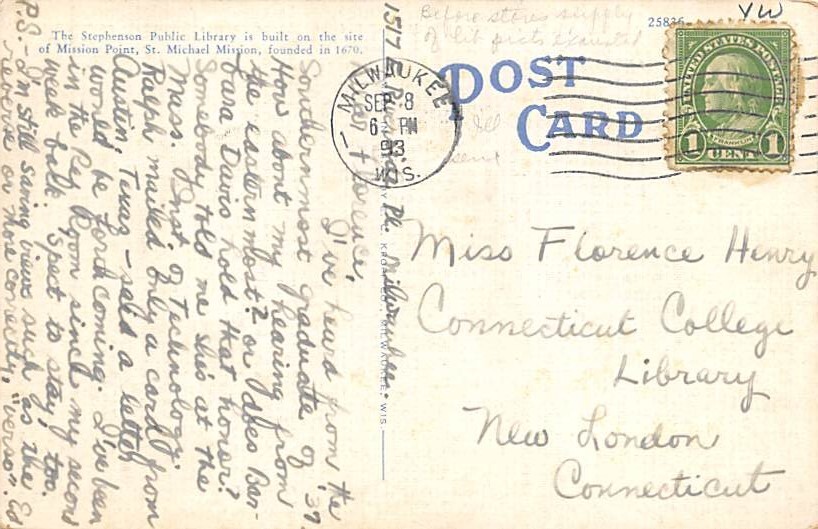 The Stephenson Public Library is built on the site
of Mission Point, St. Michael Mission, founded in 1670.
Before stores supply
of lib picts exhausted
25836
YW
POST
CARD
MILWAUKEE
SEP 8
6 PM
WIS.
UNITED STATES POSTAGE
FRANKLIN
1 CENT 1
Florence,
I've heard from the
Southernmost graduate of '37,
How about my hearing from
the easternmost? or does Bar-
bara Davis hold that honor?
Somebody told me she's at the
Mass. Inst. of Technology.
Ralph mailed only a card from
Austin, Texas - said a letter
would be forthcoming. I've been
in the Per. Room since my second
week back. 'Spect to stay, too.
P.S. - I'm still saving views such as the
reverse or more correctly, "verso". Ed
1517
Pl. Milwaukee.
MILWAUKEE, WIS.
Miss Florence Henry
Connecticut College
Library
New London
Connecticut